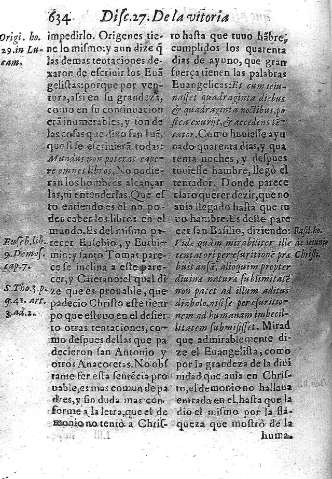 634 Disc. 27. De la vitoria
Origi. ho.
29. in Lu-
cam.
impedirlo. Origenes tie-
ne lo mismo: y aun dize q̃
las demas tentaciones de-
xaron de escriuir los Euã-
gelistas: porque por ven-
tura, assi en su grandeza,
como en su continuacion
erã inumerables, y ton de
las cosas que dize san Iuã,
que si se escriuieran todas:
Mundus non poterat cape-
re omnes libros. No podie-
ran los hombres alcançar
las, ni entenderlas. Que es
to entendemos en no po-
der caber los libros en el
mundo. Es del mismo pa-
recer Eusebio, y Euthi-
mio; y santo Tomas pare-
ce se inclina a este pare-
cer, y Caietano: el qual di
ze que es prouable, que
padecio Christo este tiem
po que estuuo en el desier
to otras tentaciones, co-
mo despues dellas que pa
decieron san Antonio y
otros Anacoretas. No obs
tante ser esta sentẽcia pro
uable, es mas comun de pa
dres, y sin duda mas con-
forme a la letra, que el de
monio no tento a Chris-
Euseb. lib.
9. Demos.
cap. 7.
S. Tho. 3. p.
q. 41. art.
3. ad. 2.
to hasta que tuuo hãbre,
cumplidos los quarenta
dias de ayuno, que gran
fuerça tienen las palabras
Euangelicas: Et cum ieiu-
nasset quadraginta diebus
& quadraginta noctibus, po
stea esurijt, & accedens ten-
tator. Como huuiesse ayu
nado quarenta dias, y qua
renta noches, y despues
tuuiesse hambre, llegò el
tentador. Donde parece
claro querer dezir, que no
auia llegado hasta que tu
uo hambre. Es deste pare
cer san Basilio, diziendo:
Vide quàm mirabiliter
tentatori per esuritionem
alioqui propter
diuinæ naturæ sublimitatẽ
non patet ad illum aditus
diabolo, nisi per esuritio-
nem ad humanam imbecil-
litatem submisisset. Mirad
que admirablemente di-
ze el Euangelista, como
por la grandeza de la diui
nidad que auia en Chris-
to, el demonio no hallaua
entrada en el, hasta que la
dio el mismo por la fla-
queza que mostrò de la
huma-
Basil. ho.
Christi.